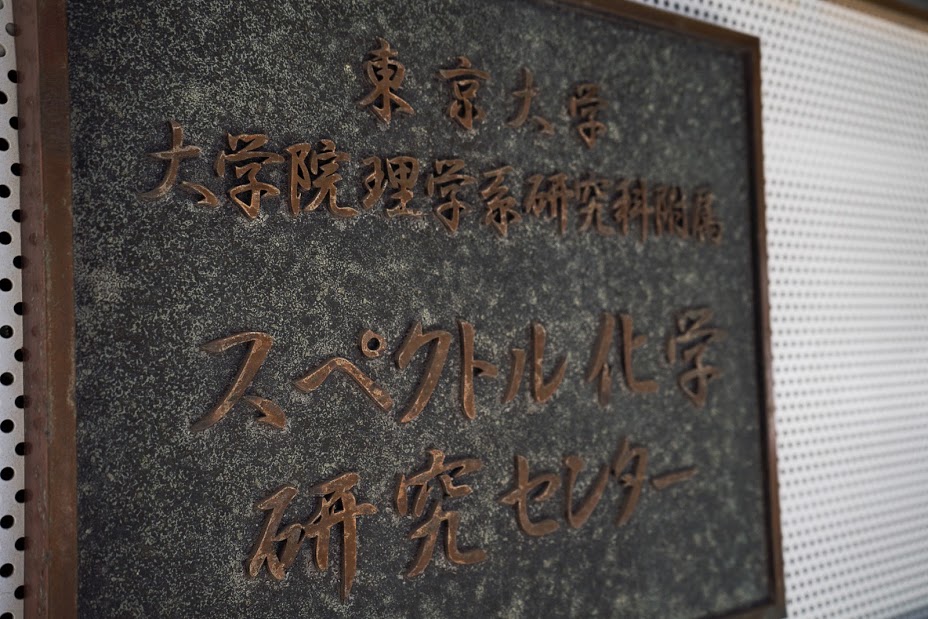 東京大学
大学院理学系研究科附属
スペクトル化学
研究センター